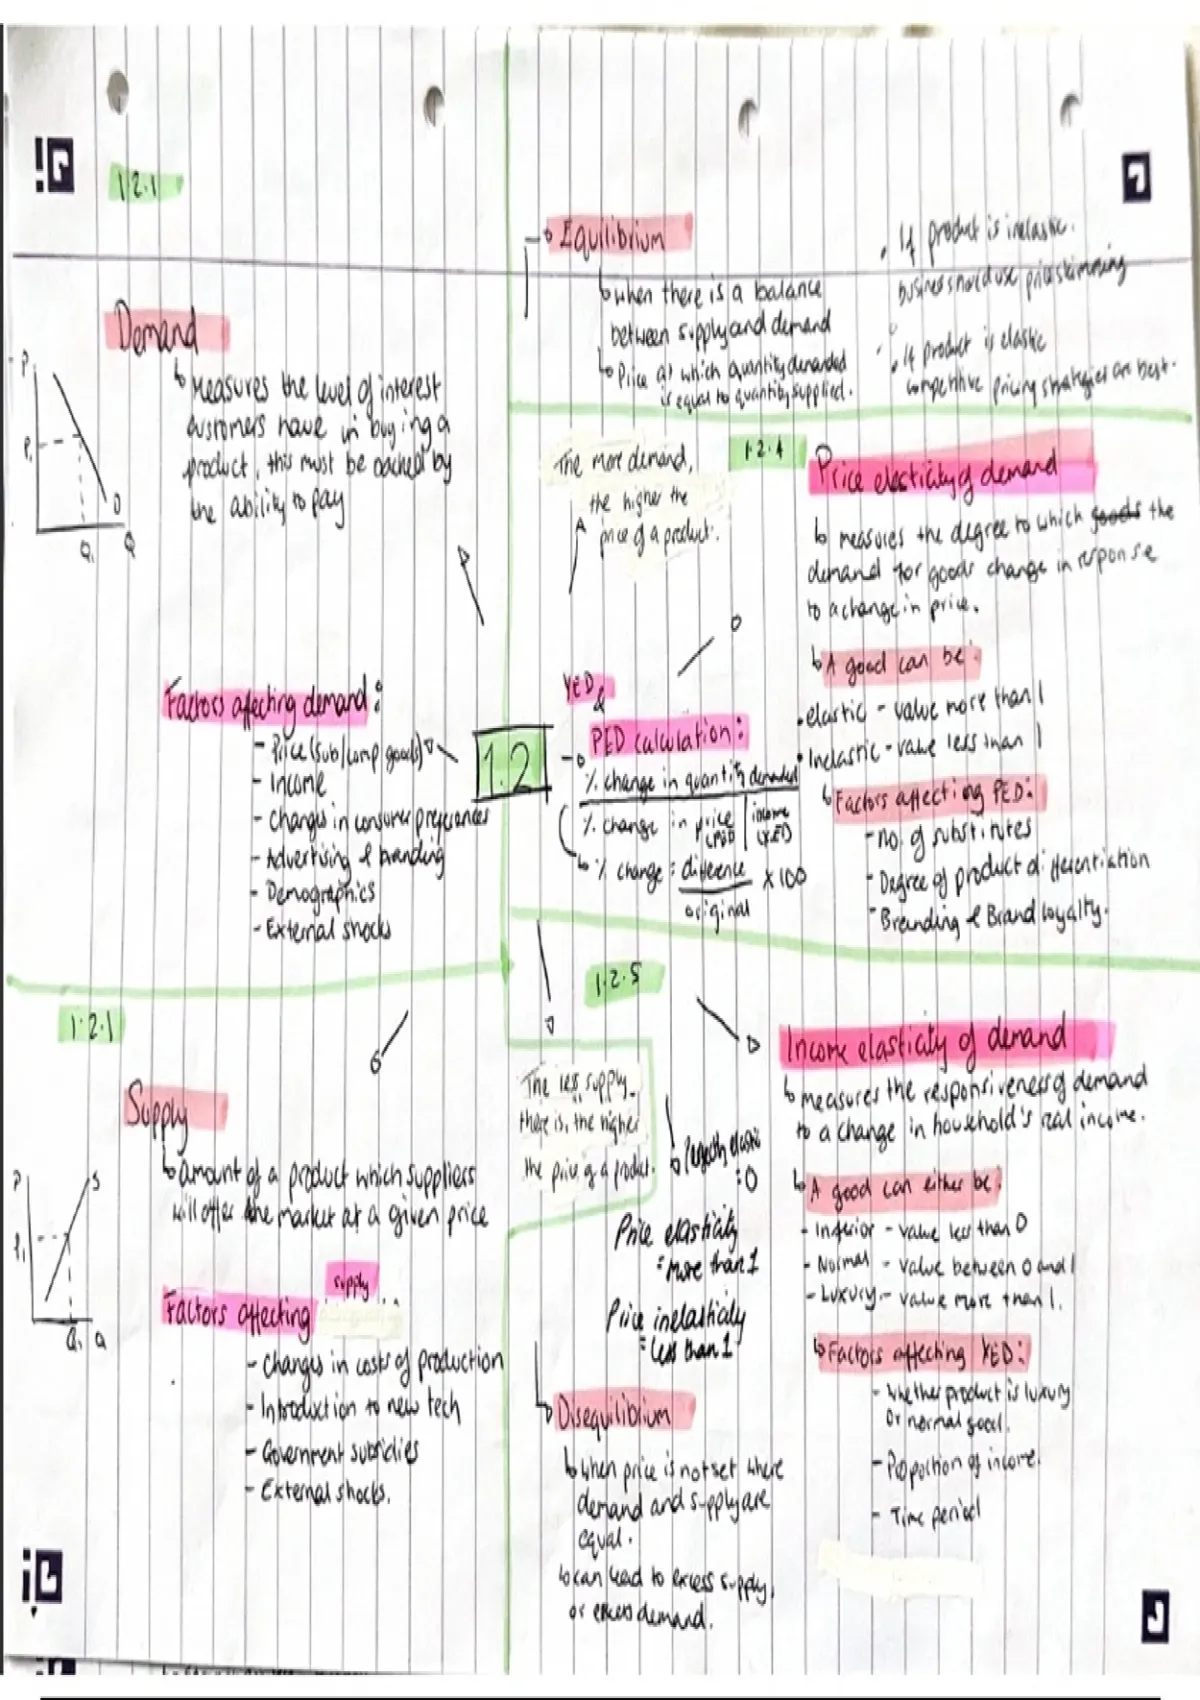 1.2.1
Demand
measures the level of interest
customers have in buying a
product, this must be backed by
the ability to pay
P
P1
D
Q1
Q
Factors affecting demand:
- Price (sub/comp goods)
- Income
- Changes in consumer preferences
- Advertising & branding
- Demographics
- External shocks
1.2.1
Supply
amount of a product which suppliers
will offer the market at a given price
P
S
P1
Q1
Q
supply
Factors affecting
- Changes in costs of production
- Introduction to new tech
- Government subsidies
- External shocks.
1.2
Equilibrium
when there is a balance
between supply and demand
Price at which quantity demanded
is equal to quantity supplied.
• If product is inelastic.
business should use price skimming
• If product is elastic
competitive pricing strategies are best.
The more demand,
the higher the
price of a product.
1.2.4
Price elasticity of demand
measures the degree to which goods the
demand for goods change in response
to a change in price.
A good can be:
• elastic - value more than 1
• Inelastic - value less than 1
Factors affecting PED:
- no. of substitutes
- Degree of product differentiation
- Branding & Brand loyalty.
YED &
PED calculation:
% change in quantity demanded
% change in price (PED) | income (YED)
% change = difference
original
x 100
1.2.5
The less supply
there is, the higher
the price of a product.
Perfectly elastic
= 0
Price elasticity
= more than 1
Price inelasticity
= less than 1
Disequilibrium
when price is not set where
demand and supply are
equal.
can lead to excess supply,
or excess demand.
Income elasticity of demand
measures the responsiveness of demand
to a change in household's real income.
A good can either be:
- Inferior - value less than 0
- Normal - value between 0 and 1
- Luxury - value more than 1.
Factors affecting YED:
- Whether product is luxury
or normal good.
- Proportion of income.
- Time period